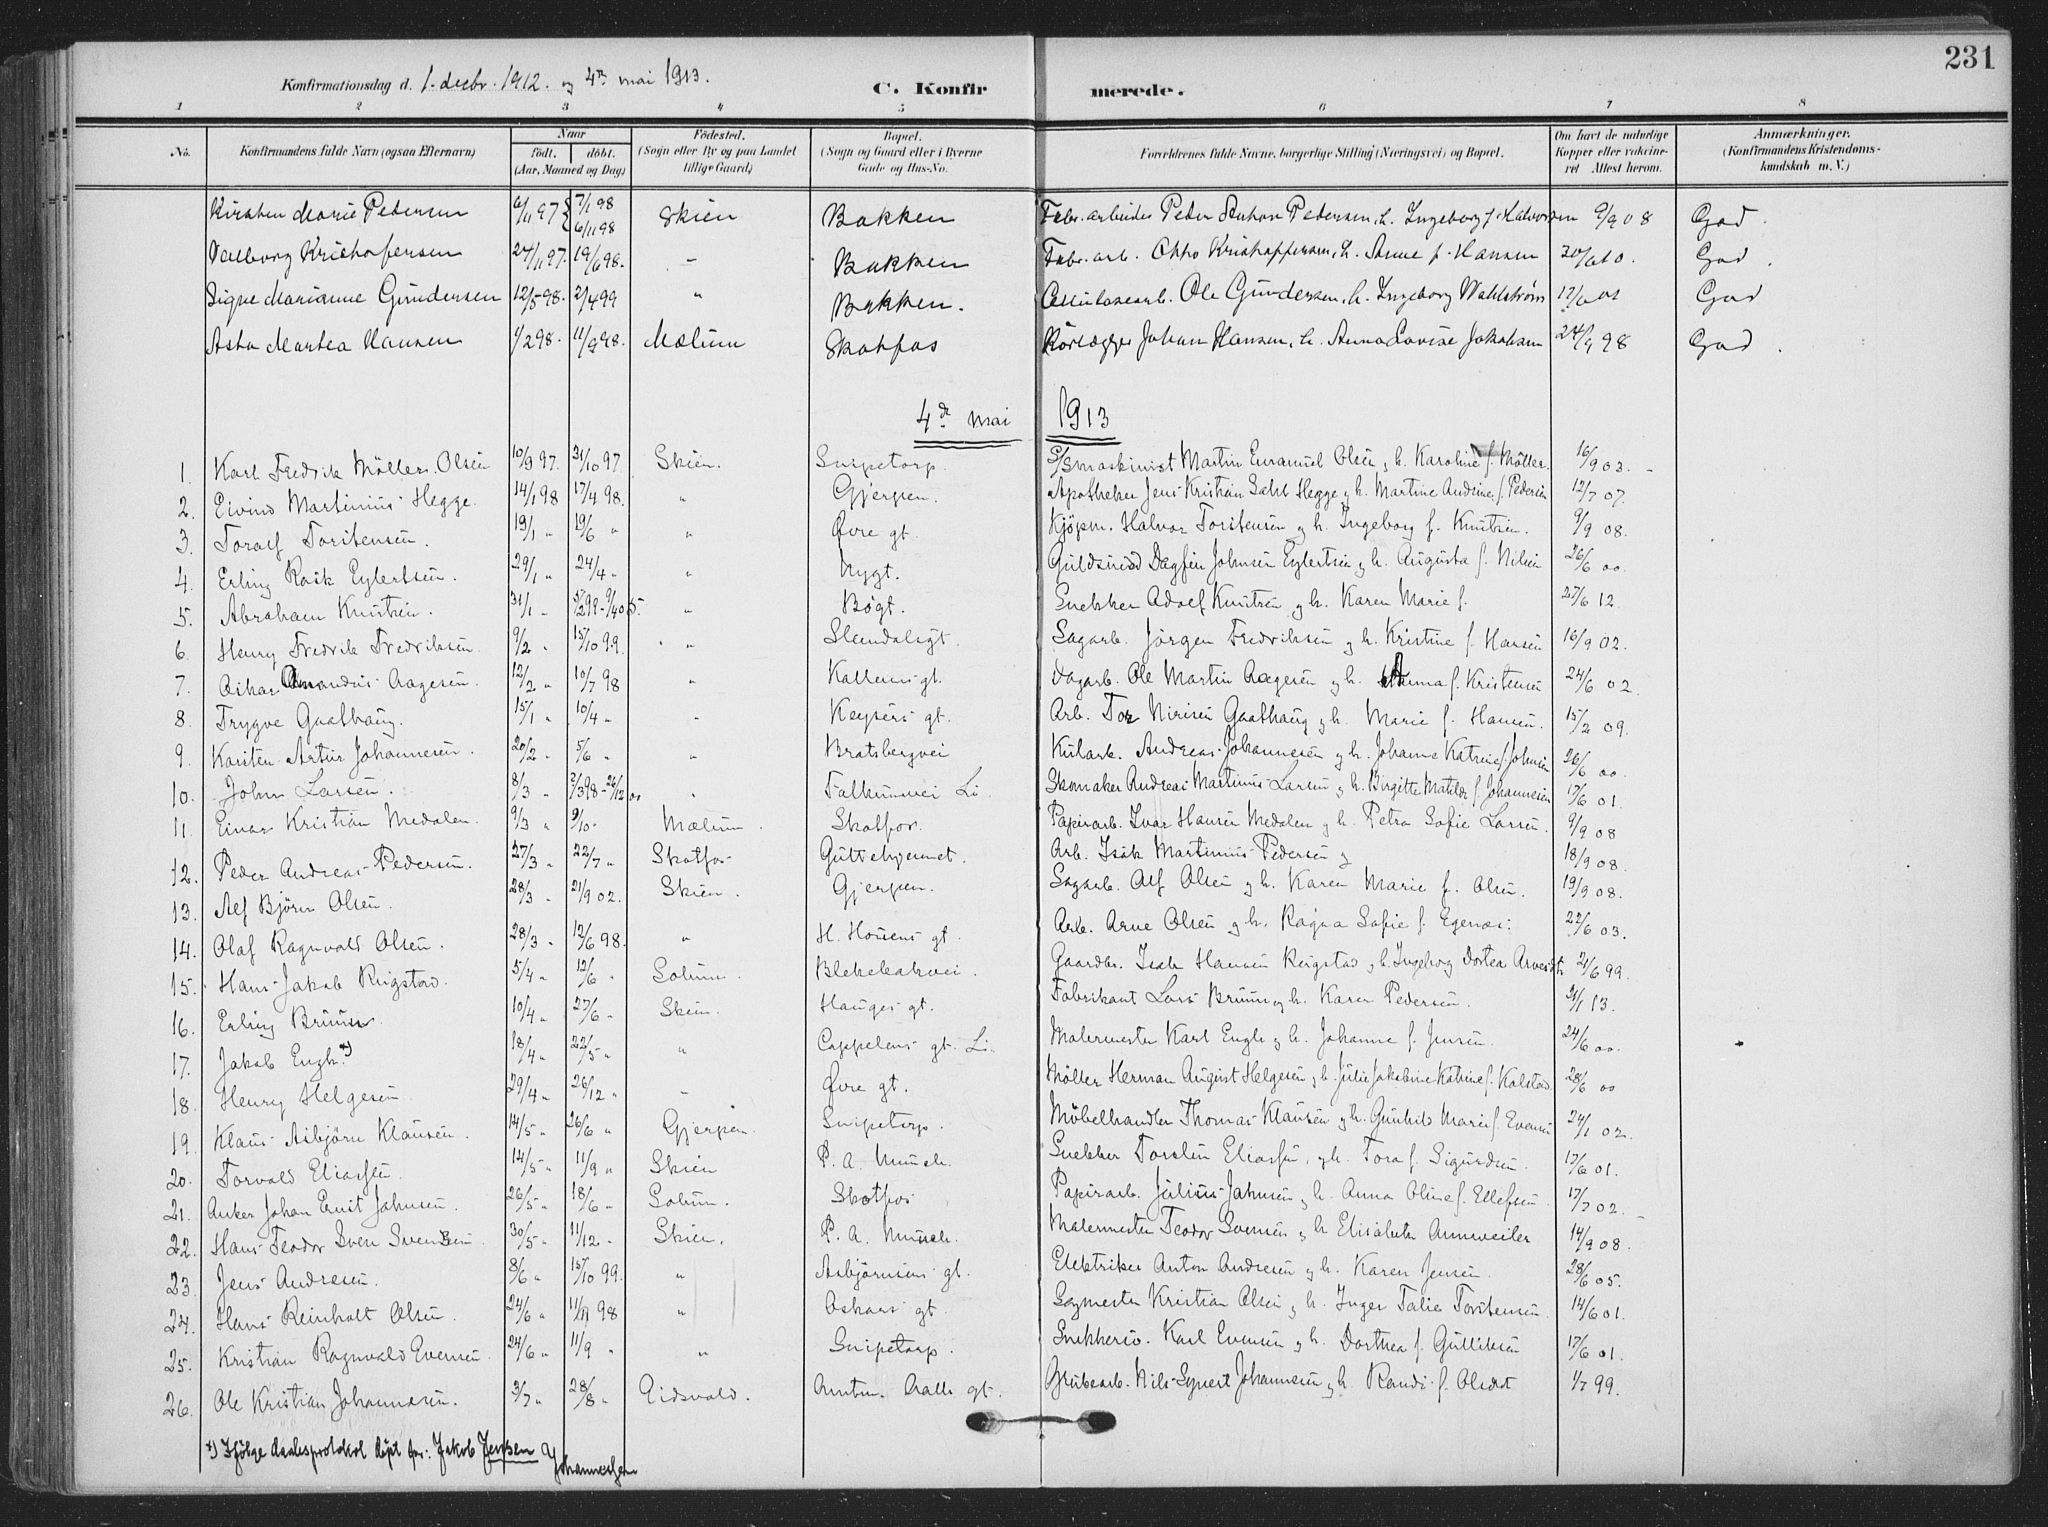 231
Konfirmationsdag d. 1. decbr. 1912. og 4de mai 1913. C. Konfirmerede.
1 2 3 4 5 6 7 8
No. Konfirmandens fulde Navn (ogsaa Efternavn) Naar födt. döbt. (Aar, Maaned og Dag) Födested. (Sogn eller By og paa Landet tillige Gaard) Bopæl. (Sogn og Gaard eller i Byerne Gade og Hus-No. Forældrenes fulde Navne, borgerlige Stilling (Næringsvei) og Bopæl. Om havt de naturlige Kopper eller vakcineret Attest herom. Anmærkninger. (Konfirmandens Kristendomskundskab m. V.)
Kirsten Marie Pedersen 6/11 97 7/1 98 6/11 98 Skien Bakken Fabr. arbeider Peder Anton Pedersen, h. Ingeborg f. Halvorsen 9/9 08 God.
Valborg Kristofersen 24/11 97. 19/6 98. - Bakken Fabr. arb. Otto Kristoffersen, h. Anne f. Hansen God.
Signe Marianne Gundersen 12/5 98. 2/4 99 " Bakken. Cellulosearb. Ole Gundersen, h. Ingeborg Wahlstrøm God
Asta Martea Hansen 1/2 98. 11/9 98. Mælum Skotfos Rörlægger Johan Hansen, h. Anna Lovise Jakobsen 24/9 98 God.
4de mai 1913
1. Karl Fredrik Möller Olsen 10/9 97. 31/10 97. Skien. Snipetorp. D/Smaskinist Martin Emanuel Olsen g. h. Karoline f. Møller. 16/9 03.
2. Eivind Martinius Hegge. 14/1 98 17/4 98. " Gjerpen. Apotheker Jens Kristian Hegge g h. Martine Andrine f. Pedersen 12/7 07.
3. Toralf Torstensen. 19/1 " 19/6 " " Øvre gt. Kjöpm. Halvor Torstensen g h. Ingeborg f. Knutsen. 9/9 08.
4. Erling Rask Eylertsen. 29/1 " 24/4 " " Nygt. Guldsmed Dagfin Johnsen Eylertsen g h. Augusta f. Nilsen 26/6 00.
5. Abraham Knutsen. 31/1 " " Bøgt. Snekker Adolf Knutsen g h. Karen Marie f. 27/6 12.
6. Henry Fredrik Fredriksen. 9/2 " 15/10 99. " Slemdalsgt. Sagarb. Jörgen Fredriksen g h. Kristine f. Hansen 16/9 02.
7. Oskar Amandus Aagesen. 12/2 " 10/7 98 " Kattensgt. Dagarb. Ole Martin Aagesen g h. Anna f. Kristensen 24/6 02.
8. Trygve Gaathaug. 15/1 " 10/4 " " Keysers gt. Arb. Tor Nirisen Gaathaug g h. Marie f. Hansen. 15/2 09.
9. Karsten Artur Johannesen. 20/2 " 5/6 " " Bratsbergvei Kulark. Andreas Johannesen g h. Johanne Katrine f. Johnsen 26/6 00.
10. John Larsen. 8/3 " 2/3 98 - 26/12 00 " Falkumvei Li. Skomaker Andreas Martinus Larsen g h. Birgitte Matilde f. Johannesen 17/6 01.
11. Einar Kristian Medalen. 9/3 " 9/10 Mælum. Skotfos. Papirarb. Ivar Hansen Medalen g h. Petra Sofie Larsen. 9/9 08
12. Peder Andreas Pedersen. 27/3 " 22/7 " Skotfos Guttehjemmet. Arb. Isak Martinius Pedersen g 18/9 08.
13. Alf Björn Olsen. 28/3 " 21/9 02. Skien. Gjerpen. Sagarb. Alf Olsen g h. Karen Marie f. Olsen. 19/9 08.
14. Olaf Ragnvald Olsen. 28/3 " 12/6 98. " H. Housens gt. Arb. Arne Olsen g h. Ragna Sofie f. Egenæs. 22/6 03.
15. Hans Jakob Rugstad. 5/4 " 12/6 " Solum. Blekebakvei. Gaardbr. Isak Hansen Rugstad g h. Ingeborg Dortea 21/6 99.
16. Erling Bruun. 10/4 " 27/6 " Skien. Hauges gt. Fabrikant Lars Bruun g h. Karen Pedersen. 13.
17. Jakob Engh. *) 18/4 " 22/5 " " Cappelens gt. Li. Malermester Karl Engh g h. Johanne f. Jensen. 24/6 00.
18. Henry Helgesen 29/4 " 26/12 " " Øvre gt. Møller Herman August Helgesen g h. Julie Jakobine Katrine f. Kolstad. 28/6 00
19. Klaus Asbjörn Klausen. 14/5 " 26/6 " Gjerpen. Snipetorp. Möbelhandler Thomas Klausen g h. Gunhild Marie f. Evensen 24/1 02.
20. Torvald Eliassen 14/5 " 11/9 " Skien P. A. Munch. Snekker Torstein Eliassen, g h. Tora f. Sigurdsen. 17/6 01.
21. Anker Johan Ernst Jahnsen. 26/5 " 18/6 " Solum. Skotfos Papirarb. Julius Jahnsen g h. Anna Oline f. Ellefsen 17/7 02.
22. Hans Teodor Sven Svendsen 30/5 " 11/12 " Skien. P. A. Munch. Malermester Teodor Svensen g h. Elisabeth Annweiler 14/9 08.
23. Jens Andresen. 8/6 " 15/10 99. " Asbjörnsens gt. Elektriker Anton Andresen g h. Karen Jensen. 28/6 05.
24. Hans Reinholt Olsen. 24/6 " 11/11 98 " Oskars gt. Sagmester Kristian Olsen g h. Inger Talie Torstensen 14/6 01.
25. Kristian Ragnvald Evensen. 24/6 " 11/9 " " Snipetorp. Snekkersv. Karl Evensen g h. Dorthea f. Gulliksen 17/6 01.
26. Ole Kristian Johannesen. 3/7 " 28/8 " Eidsvold. Amtm. Aalls gt. Grubearb. Nils Syvert Johannesen g h. Randi f. Olsdt 1/7 99.
*) Ifölge daabsprotokol döpt for: Jakob Jensen Johannessen